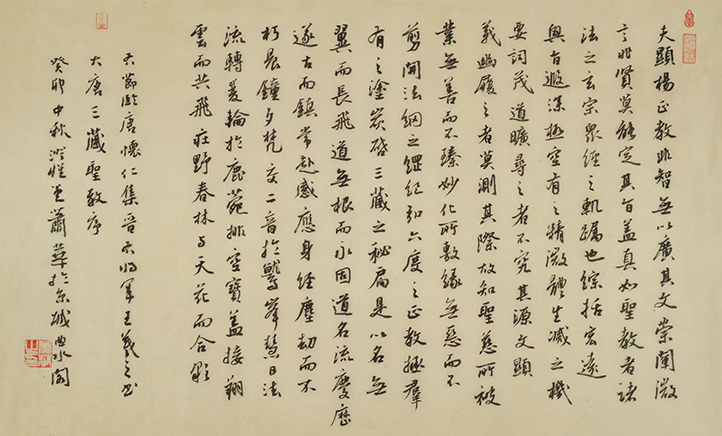 夫顯揚正教非智無以廣其文崇闡微
言非賢莫能定其旨蓋真如聖教者諸
法之玄宗眾經之軌躅也綜括宏遠
奧旨遐深極空有之精微體生滅之機
要詞茂道曠尋之者不究其源文顯
義幽履之者莫測其際故知聖慈所被
業無善而不臻妙化所敷緣無惡而不
剪開法網之綱紀弘六度之正教拯群
有之塗炭啓三藏之秘扃是以名無
翼而長飛道無根而永固道名流慶歷
遂古而鎮常赴感應身經塵劫而不
朽晨鐘夕梵交二音於鷲峯慧日法
流轉雙輪於鹿苑排空寶蓋接翔
雲而共飛莊野春林與天花而合彩
右節臨唐懷仁集晉右將軍王羲之書
大唐三藏聖教序
癸卯中秋澄蕭華於京城曲水閣